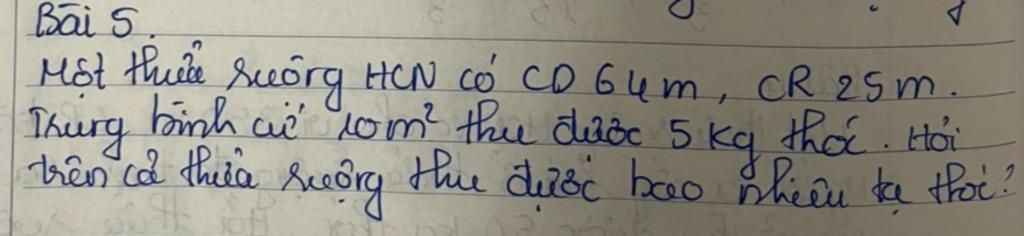 Bài 5.
Một thửa ruộng HCN có CD 64m, CR 25m.
Trung bình cứ 10m² thu được 5 kg thóc. Hỏi
trên cả thửa ruộng thu được bao nhiêu tạ thóc?